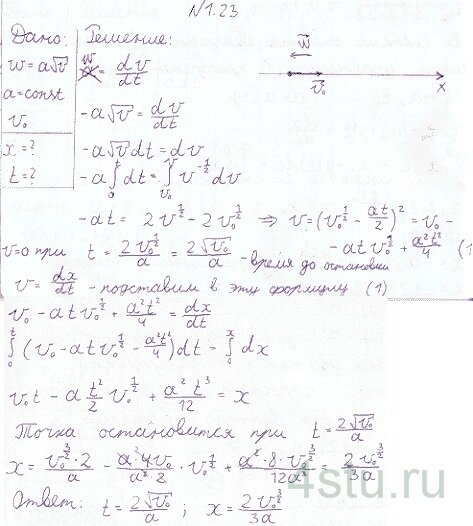 N 1.23
Дано: Решение:
w = a√v w = dv/dt w⃗
a = const -a√v = dv/dt v⃗₀ x
v₀ -a√v dt = dv
x = ? -a ∫₀ᵗ dt = ∫ᵥ₀ᵛ v^(-1/2) dv
t = ?
-at = 2v^(1/2) - 2v₀^(1/2) ⇒ v = (v₀^(1/2) - at/2)² = v₀ -
- at v₀^(1/2) + a²t²/4 (1
v=0 при t = 2v₀^(1/2)/a = 2√v₀/a - время до остановки
v = dx/dt - подставим в эту формулу (1)
v₀ - at v₀^(1/2) + a²t²/4 = dx/dt
∫₀ᵗ (v₀ - at v₀^(1/2) - a²t²/4) dt = ∫₀ˣ dx
v₀t - a t²/2 v₀^(1/2) + a²t³/12 = x
Точка остановится при t = 2√v₀/a
x = v₀^(3/2)·2/a - a·4v₀/a²·2 · v₀^(1/2) + a²·8·v₀^(3/2)/12a³ = 2v₀^(3/2)/3a
4stu.ru
Ответ: t = 2√v₀/a ; x = 2v₀^(3/2)/3a